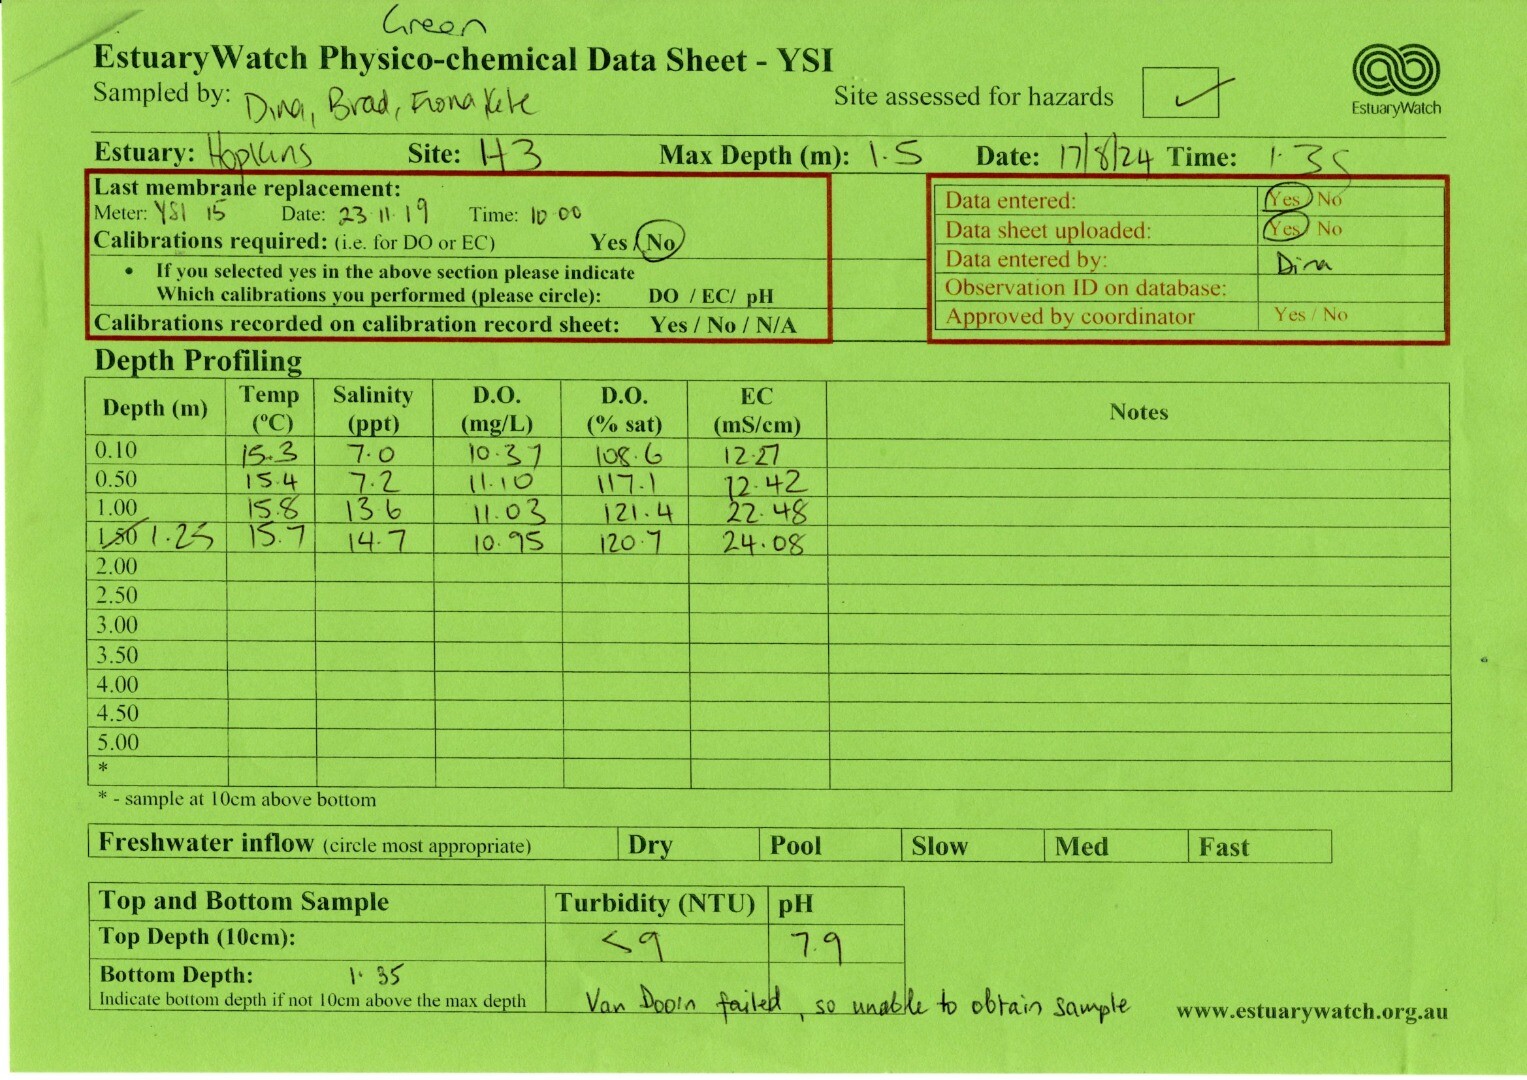 Green
EstuaryWatch Physico-chemical Data Sheet - YSI
Sampled by: Dina, Brad, Fiona Kete
Site assessed for hazards ✓
EstuaryWatch
Estuary: Hopkins Site: H3 Max Depth (m): 1.5 Date: 17/8/24 Time: 1.35
Last membrane replacement:
Meter: YSI 15 Date: 23 11 19 Time: 10 00
Calibrations required: (i.e. for DO or EC) Yes / No
• If you selected yes in the above section please indicate
Which calibrations you performed (please circle): DO / EC/ pH
Calibrations recorded on calibration record sheet: Yes / No / N/A
Data entered: Yes / No
Data sheet uploaded: Yes / No
Data entered by: Dina
Observation ID on database:
Approved by coordinator Yes / No
Depth Profiling
Depth (m) Temp (ºC) Salinity (ppt) D.O. (mg/L) D.O. (% sat) EC (mS/cm) Notes
0.10 15.3 7.0 10.37 108.6 12.27
0.50 15.4 7.2 11.10 117.1 12.42
1.00 15.8 13.6 11.03 121.4 22.48
1.50 1.25 15.7 14.7 10.95 120.7 24.08
2.00
2.50
3.00
3.50
4.00
4.50
5.00
*
* - sample at 10cm above bottom
Freshwater inflow (circle most appropriate) Dry Pool Slow Med Fast
Top and Bottom Sample Turbidity (NTU) pH
Top Depth (10cm): <9 7.9
Bottom Depth: 1.35
Indicate bottom depth if not 10cm above the max depth Van Doorn failed, so unable to obtain sample
www.estuarywatch.org.au